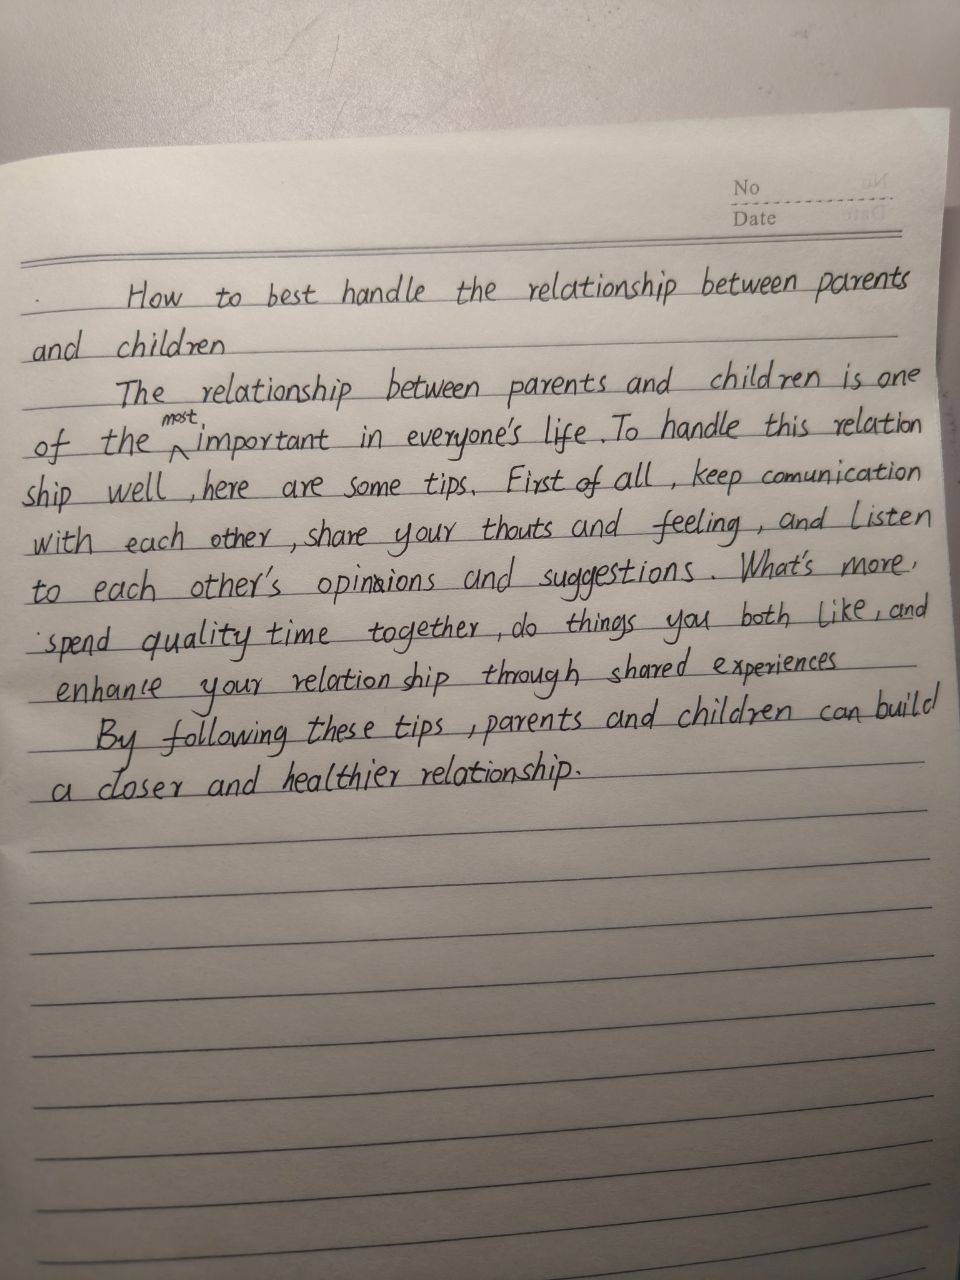 No
Date
How to best handle the relationship between parents
and children
The relationship between parents and children is one
of the most important in everyone's life. To handle this relation
ship well, here are some tips. First of all, keep comunication
with each other, share your thouts and feeling, and Listen
to each other's opinions and suggestions. What's more,
spend quality time together, do things you both like, and
enhance your relationship through shared experiences
By following these tips, parents and children can build
a closer and healthier relationship.